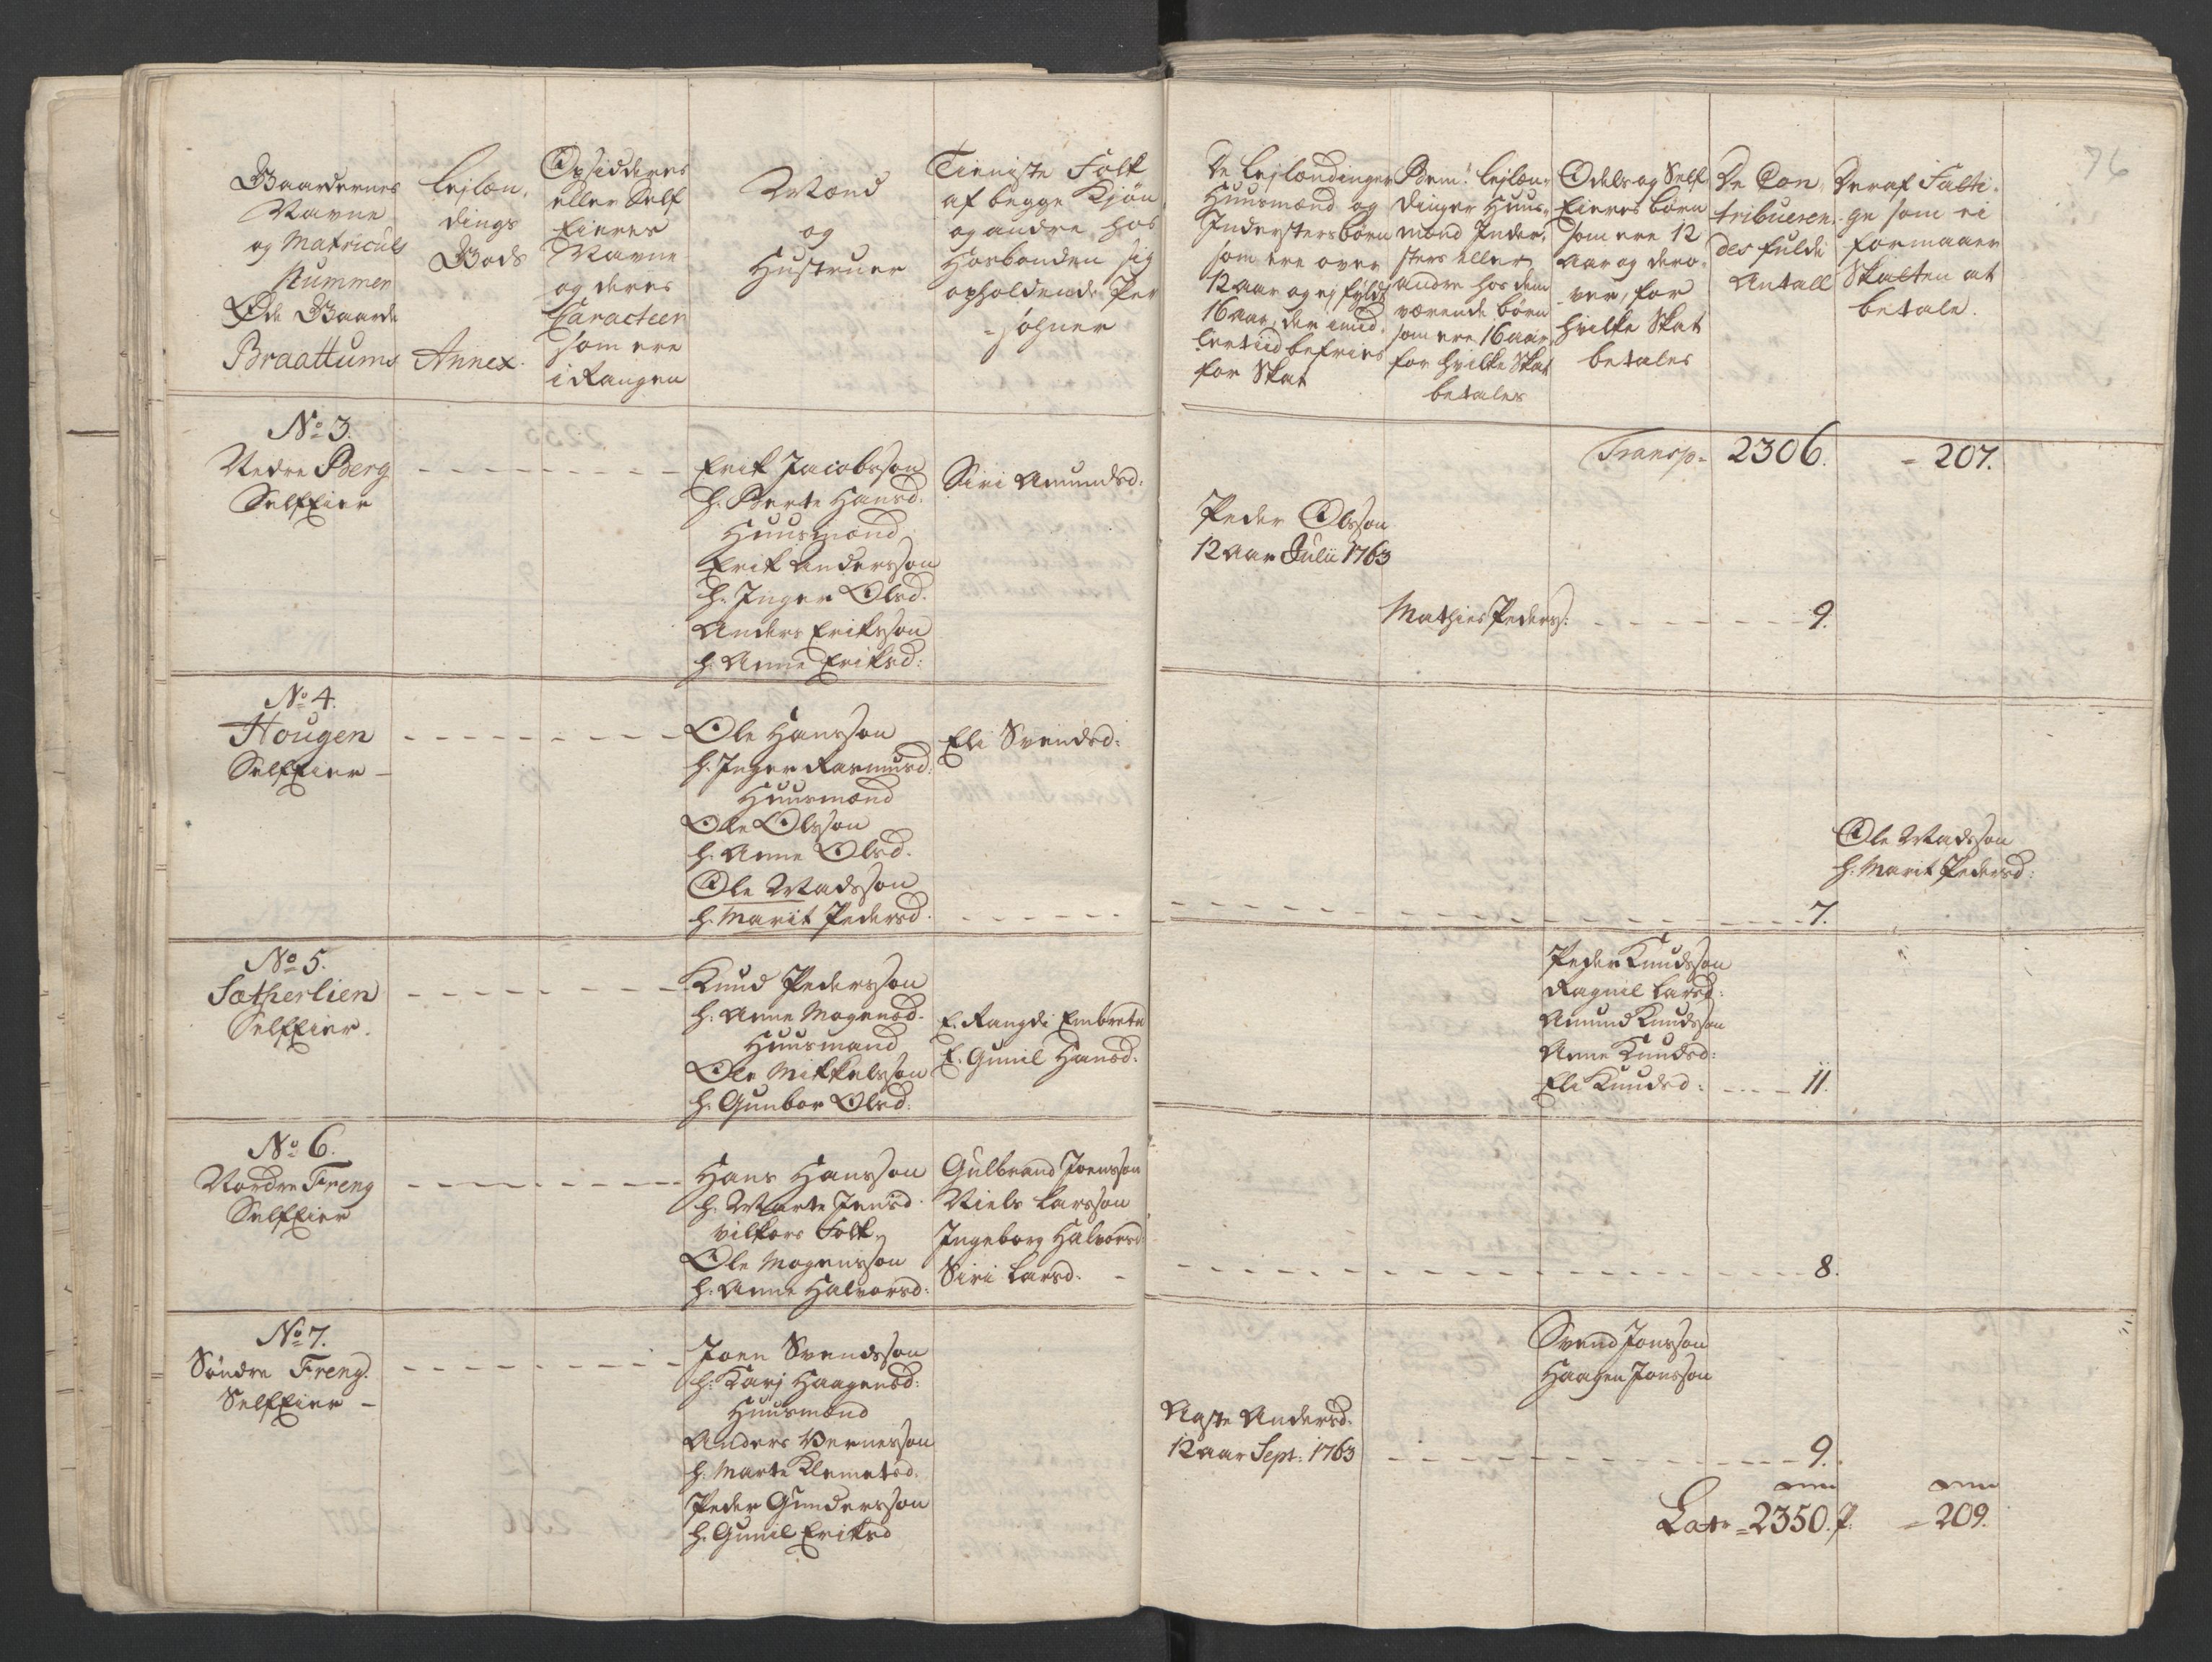 Gaardernes
Navne
og Matriculs
Nummer
Øde Gaarde
Braattums Annex.
Lejlæn-
dings
Gods
Opsidderes
eller Self
Eieres
Navne
og deres
Caracteer
som ere
i Rangen
Mænd
og
Hustruer
Tieniste Folk
af begge Kjøn
og andre hos
Hosbonden sig
opholdende Per
-sohner
De Lejlændinger
Huusmænd og
Indersters børn
som ere over
12 aar og ej fyldt
16 aar, der imid-
lertiid befries
for Skat
Bem: Lejlæn-
dinger Huus-
mænd Inder-
sters eller
andre hos dem
værende børn
som ere 16 aar
for hvilke Skat
betales
Odels og Self
Eieres børn
som ere 12
aar og dero-
ver, for
hvilke Skat
betales
De Con-
tribueren-
des fulde
Antall
Deraf Fatti-
ge som ei
formaaer
Skatten at
betale.
76
Transp= 2306. = 207.
No 3.
Nedre Berg
SelfEier
Erik Jacobsson
h. Berte Hansd:
Huusmænd
Erik Andersson
h. Inger Olsd.
Anders Eriksson
h. Anne Eriksd:
Siri Amundsd:
Peder Olsson
12 aar Julii 1763
Mathies Peders: 9.
No 4.
Hougen
SelfEier
Ole Hansson
h. Inger Rasmusd:
Huusmænd
Ole Olsson
h. Anne Olsd.
Ole Madsson
h. Marit Pedersd.
Eli Svendsd:
7.
Ole Madsson
h. Marit Pedersd:
No 5.
Sætherlien
SelfEier.
Knud Pedersson
h. Anne Mogensd.
Huusmand
Ole Mikkelsson
h. Gunbor Olsd.
E. Rangdi Embretsd
E. Gunil Hansd.
Peder Knudsson
Ragnil Larsd:
Amund Knudsson
Anne Knudsd:
Eli Knudsd: 11.
No 6.
Nordre Freng
SelfEier
Hans Hansson
h. Marte Jensd.
Vilkors Folk
Ole Mogensson
h. Anne Halvorsd:
Gulbrand Joensson
Niels Larsson
Ingeborg Halvorsd
Siri Larsd.
8.
No 7.
Søndre Freng.
SelfEier
Joen Svendsson
h. Karj Haagensd:
Huusmænd
Anders Bernesson
h. Marte Klemetsd:
Peder Gundersson
h. Gunil Eriksd
Svend Jonsson
Haagen Jonsson
Aaste Andersd.
12 aar Sept: 1763
9.
Latr = 2350. P: = 209.